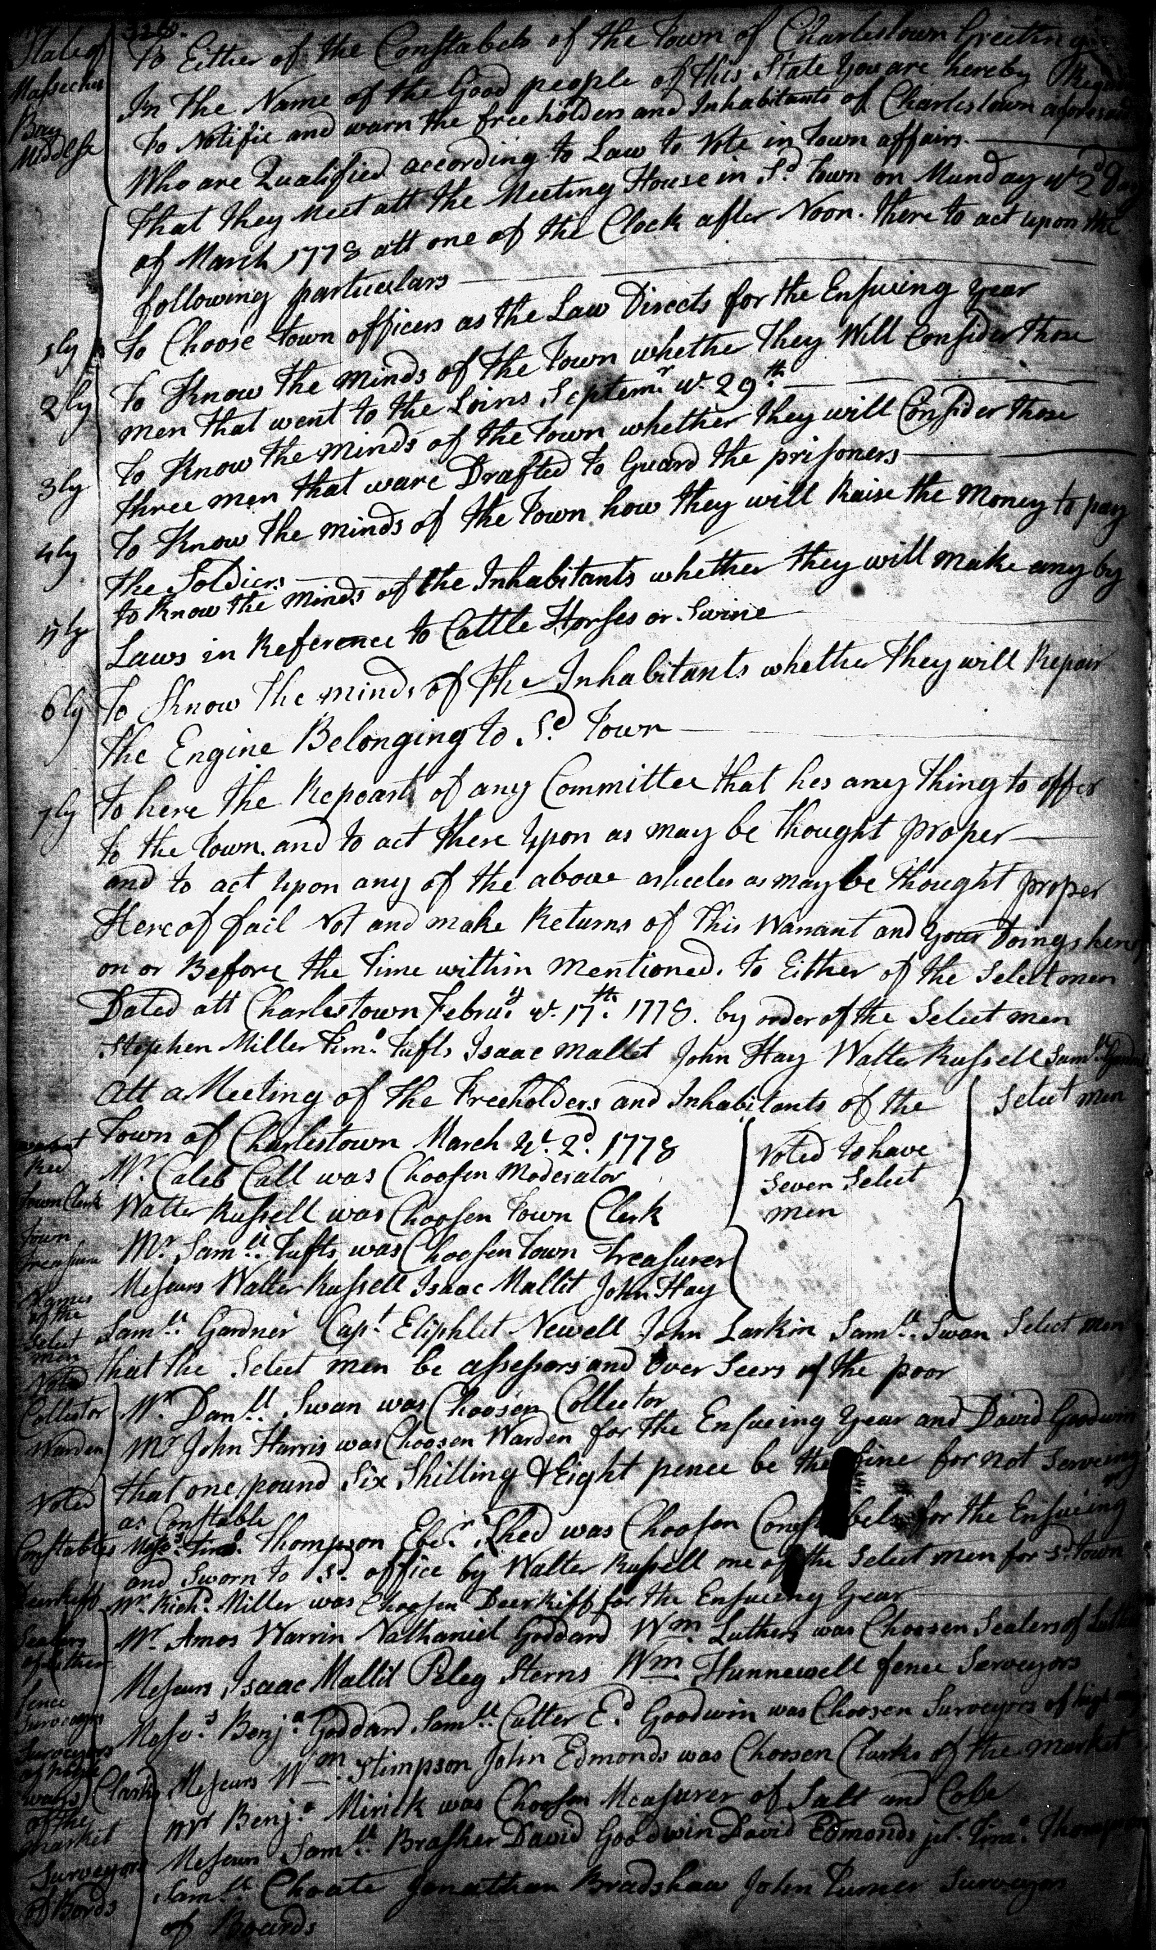 State of
Massechus
Bay
Middlse
To Either of the Constabels of the Town of Charlestown Greeting
In the Name of the Good people of this State You are hereby Requir
To Notifie and warn the freeholders and Inhabitants of Charlestown aforesaid
Who are Qualified according to Law to Vote in Town affairs.
That they Meet att the Meeting House in Sd. Town on Munday ye 2d Day
of March 1778 att one of the Clock after Noon. there to act upon the
following particulars
1ly To Choose Town officers as the Law Directs for the Ensuing Year
2ly To Know the Minds of the Town whether they Will Consider those
men that went to the Loins Septemr ye 29th
3ly To Know the Minds of the Town whether they will Consider those
three men that ware Drafted to Guard the prisoners
4ly To Know the minds of the Town how they will Raise the Money to pay
the Soldiers
5ly to Know the Minds of the Inhabitants whether they will make any by
Laws in Reference to Cattle Horses or Swine
6ly To Know the minds of the Inhabitants whether they will Repair
the Engine Belonging to Sd Town
7ly To here the Repoart of any Committee that hes any thing to offer
to the Town and to act there Upon as may be thought proper
and to act upon any of the above as may be thought proper
Hereof fail Not and make Returns of this Warrant and your Doings
on or Before the Time within Mentioned. to Either of the Select men
Dated att Charlestown FebrUy ye 17th 1778. by order of the Select men
Stephen Miller Timo. Tufts Isaac Mallet John Hay Walter Russell Samll
Select men
Att a Meeting of the Freeholders and Inhabitants of the
Town of Charlestown March ye 2d 1778
Voted to have
Seven Select
men
Mr. Caleb Call was Choosen Moderator
Town Clerk Walter Russell was Choosen Town Clerk
Town
Treasurer Mr Samll Tufts was Choosen Town Treasurer
Names
of the
Select
men
Meseurs Walter Russell Isaac Mallit John Hay
Samll Gardner Capt Eliphlet Newell John Larkin Samll. Swan Select men
Voted that the Select men be assessors and Over Seers of the poor
Collector Mr. Danll Swan was Choosen Collector
Warden Mr John Harris was Choosen Warden for the Ensueing Year and David Goodwin
Voted that one pound Six Shilling & Eight pence be the fine for not Serveing
as Constable
Constables Messs. Timo. Thompson Eber. Shed was Choosen Constabels for the Ensueing
and Sworn to Sd. office by Walter Russell one of the Select men for Sd Town
Deerkiff Mr. Richd. Miller was Choosen Deerkiff for the Ensueing Year
Sealers
of Lether
Mr. Amos Warrin Nathaniel Goddard Wm Luthers was Choosen Sealers of
Fence
Surveyors
Meseurs Isaac Mallit Peleg Sterns Wm Hunnewell fence Surveyors
Surveyors
of high
ways
Messrs Benja Goddard Samll Cutter Ed Goodwin was Choosen Surveyors of high
Clarks
of the
Market
Meseurs Wm Stimpson John Edmonds was Choosen Clarks of the Market
Mr Benja Mirick was Choosen Measurer of Salt and Cole
Surveyors
of Bords
Meseurs Samll Brasher David Goodwin David Edmonds Timo. Thompson
Samll Choate Jonathan Bradshaw John Turner Surveyors
of Boards